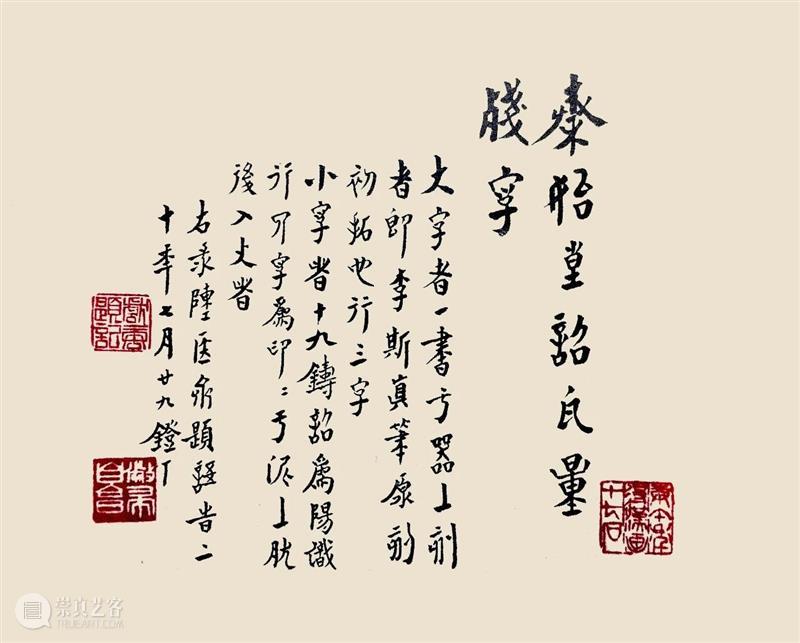 秦始皇詔瓦量
殘字
大字者一書于器上刻
者即李斯真筆原刻
初拓也行三字
小字者十九鑄詔爲陽識
行四字爲印〻于泥上脫
後入火者
右录陳 題 二
十年七月廿九鐙下
崇真艺客